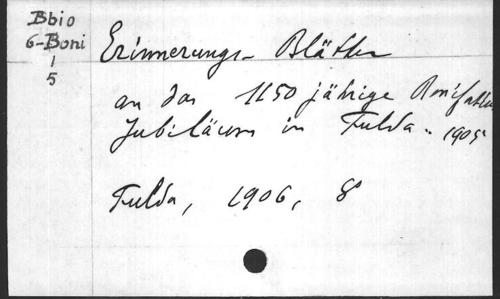 Bbio
6-Boni
1
5
Erinnerungs- Blätter
an das 1150 jährige Bonifatius
Jubiläum in Fulda. 1905
Fulda, 1906, 8°